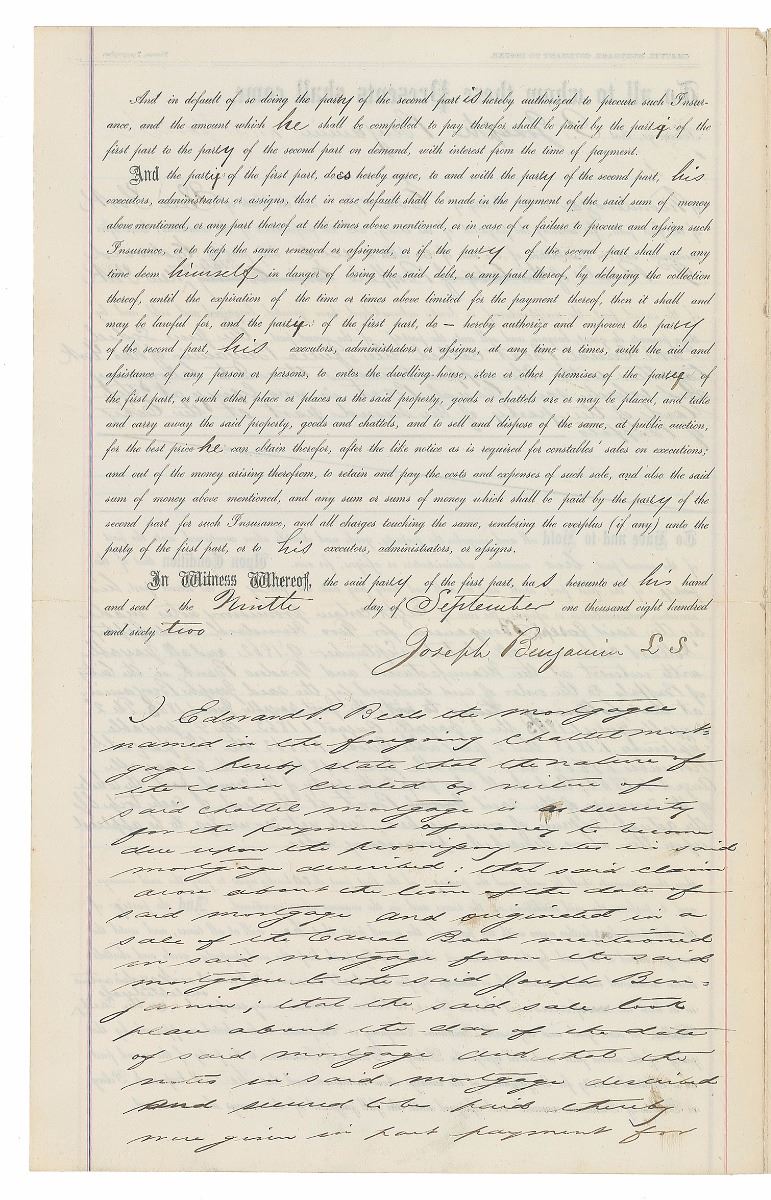 And in default of so doing the party of the second part is hereby authorized to procure such Insur-
ance, and the amount which he shall be compelled to pay therefor shall be paid by the party of the
first part to the party of the second part on demand, with interest from the time of payment.
And the party of the first part, does hereby agree, to and with the party of the second part, his
executors, administrators or assigns, that in case default shall be made in the payment of the said sum of money
above mentioned, or any part thereof at the times above mentioned, or in case of a failure to procure and assign such
Insurance, or to keep the same renewed or assigned, or if the party of the second part shall at any
time deem himself in danger of losing the said debt, or any part thereof, by delaying the collection
thereof, until the expiration of the time or times above limited for the payment thereof, then it shall and
may be lawful for, and the party: of the first part, do — hereby authorize and empower the party
of the second part, his executors, administrators or assigns, at any time or times, with the aid and
assistance of any person or persons, to enter the dwelling-house, store or other premises of the party of
the first part, or such other place or places as the said property, goods or chattels are or may be placed, and take
and carry away the said property, goods and chattels, and to sell and dispose of the same, at public auction,
for the best price he can obtain therefor, after the like notice as is required for constables' sales on executions;
and out of the money arising therefrom, to retain and pay the costs and expenses of such sale, and also the said
sum of money above mentioned, and any sum or sums of money which shall be paid by the party of the
second part for such Insurance, and all charges touching the same, rendering the overplus (if any) unto the
party of the first part, or to his executors, administrators, or assigns.
In Witness Whereof, the said party of the first part, has hereunto set his hand
and seal , the Ninth day of September one thousand eight hundred
and sixty two
Joseph Benjamin L S
I Edward P. Beals the mortgagee
named in the foregoing chattel mort-
gage hereby state that the nature of
the claim created by virtue of
said chattel mortgage is as security
for the payment of money to become
due upon the promissory notes in said
mortgage described; that said claim
arose about the time of the date of
said mortgage and originated in a
sale of the Canal Boat mentioned
in said mortgage from the said
mortgagee to the said Joseph Ben-
jamin; that the said sale took
place about the day of the date
of said mortgage and that the
notes in said mortgage described
and secured to be paid thereby
were given in part payment for